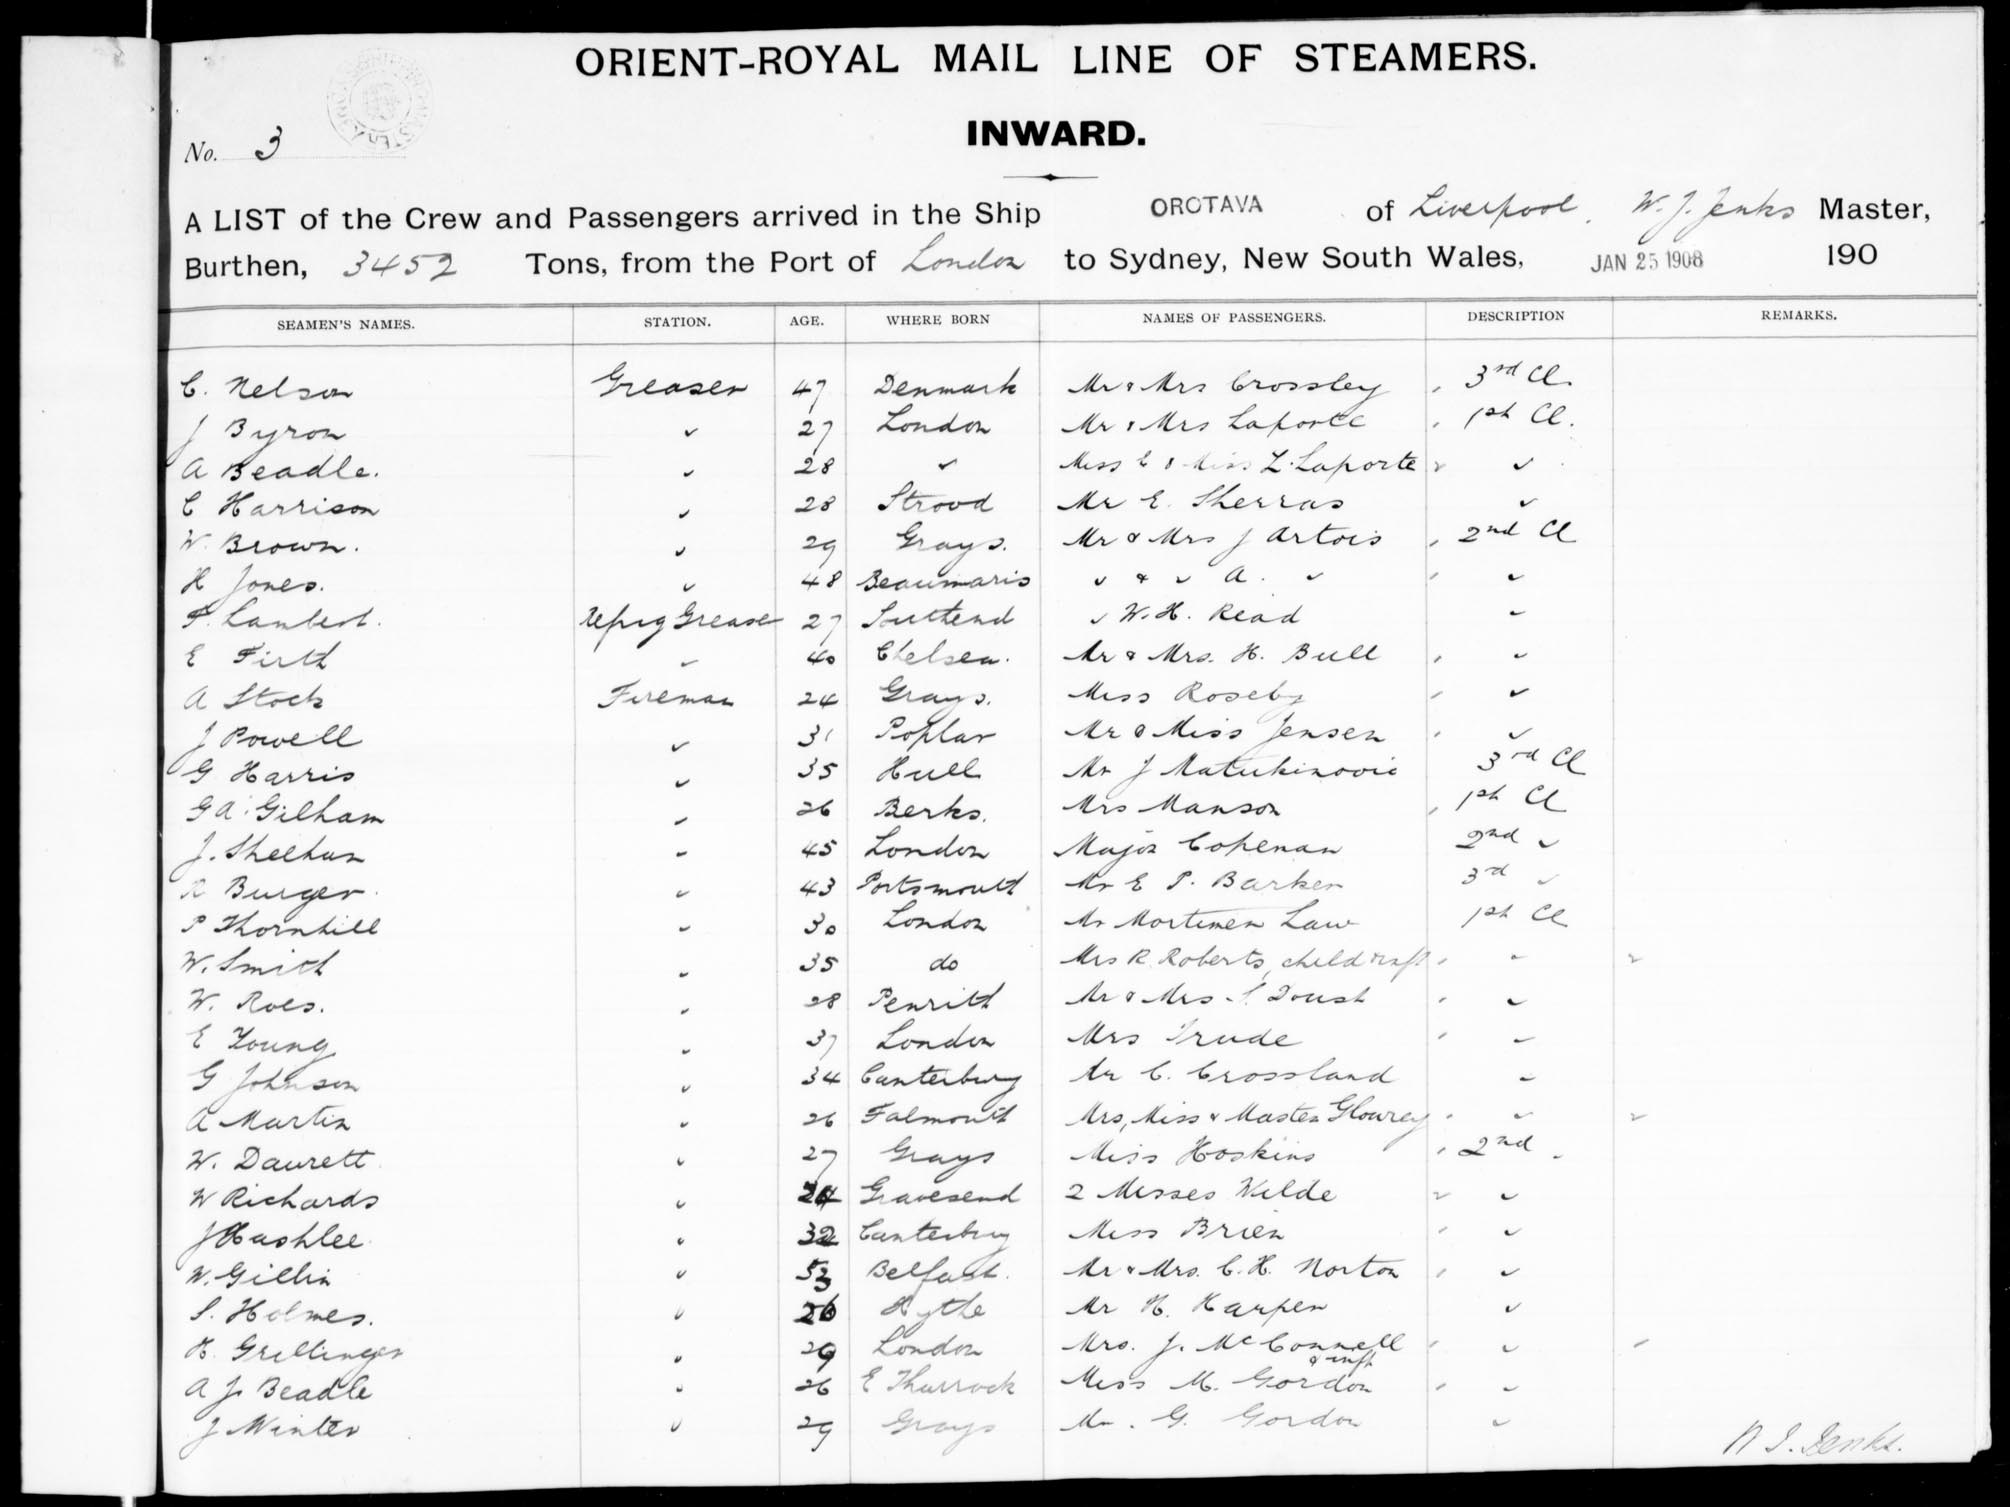 ORIENT-ROYAL MAIL LINE OF STEAMERS.
INWARD.
No. 3
A LIST of the Crew and Passengers arrived in the Ship OROTAVA of Liverpool, W. J. Jenks Master,
Burthen, 3452 Tons, from the Port of London to Sydney, New South Wales, JAN 25 1908 190
SEAMEN'S NAMES. STATION. AGE. WHERE BORN NAMES OF PASSENGERS. DESCRIPTION REMARKS.
C. Nelson Greaser 47 Denmark Mr & Mrs Crossley 3rd Cl.
J Byron " 27 London Mr & Mrs Laporte 1st Cl.
A Beadle. " 28 " Miss C & Miss L. Laporte "
C Harrison " 28 Strood Mr E. Sherras "
W. Brown. " 29 Grays. Mr & Mrs J Artois 2nd Cl
H Jones. " 48 Beaumaris " & " A. " "
F. Lambert. Refrig Greaser 27 Southend " W. H. Read "
E Firth " 40 Chelsea. Mr & Mrs. H. Bull "
A Stock Fireman 24 Grays. Miss Roseby "
J Powell " 31 Poplar Mr & Miss Jensen "
G Harris " 35 Hull Mr J Matukinovic 3rd Cl
G A. Gilham " 26 Berks. Mrs Manson 1st Cl
J. Sheehan " 45 London Major Copeman 2nd "
R Burger " 43 Portsmouth Mr E P. Barker 3rd "
P Thornhill " 30 London Mr Mortimer Law 1st Cl
W. Smith " 35 do Mrs R. Roberts, child & inft "
W. Roes. " 28 Penrith Mr & Mrs S. Doust "
E Young " 37 London Mrs Trude "
G Johnson " 34 Canterbury Mr C. Crossland "
A Martin " 26 Falmouth Mrs, Miss & Master Glowrey "
W. Daurett " 27 Grays Miss Hoskins 2nd "
W Richards " 24 Gravesend 2 Misses Wilde "
J Hashlee " 32 Canterbury Miss Brien "
W. Gillin " 53 Belfast. Mr & Mrs. C. H. Norton "
S. Holmes. " 26 Hythe Mr H. Harper "
H. Grellinger " 29 London Mrs. J. McConnell & inft "
A J. Beadle " 26 E Thurrock Miss M. Gordon "
J Winter " 29 Grays Mr. G. Gordon "
W. J. Jenks.